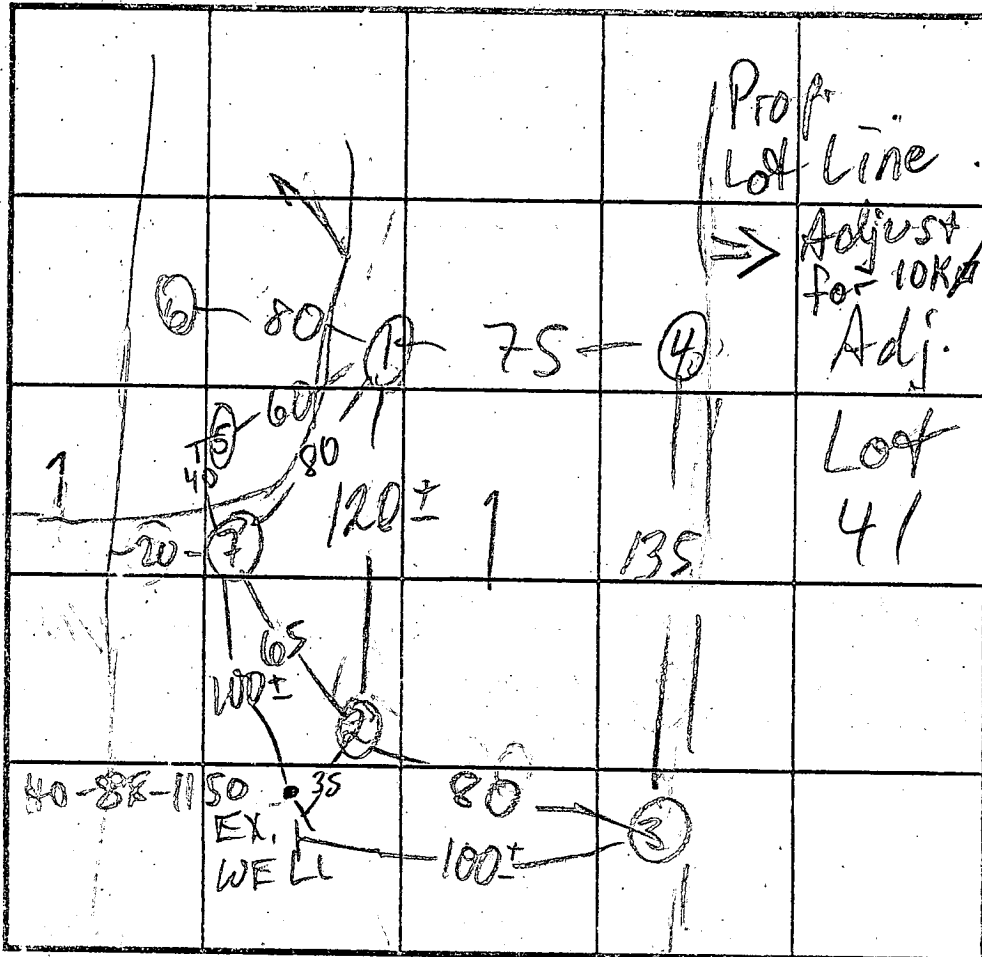 Prop.
Lot Line
Adjust
for 10K
Adj.
6 80 1 75 4
5 60
40 80
Lot
41
1 120± 1 135
20 7
65
100±
2
HO-88-1150 35 80
EX.
WELL
100± 3